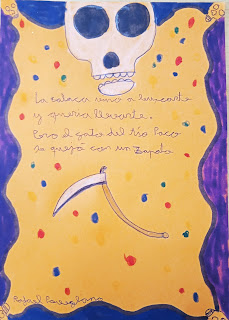 La calaca vino a buscarte
y queria llevarte.
Pero el gato del tío Paco
la quejó con un zapato
Rafael